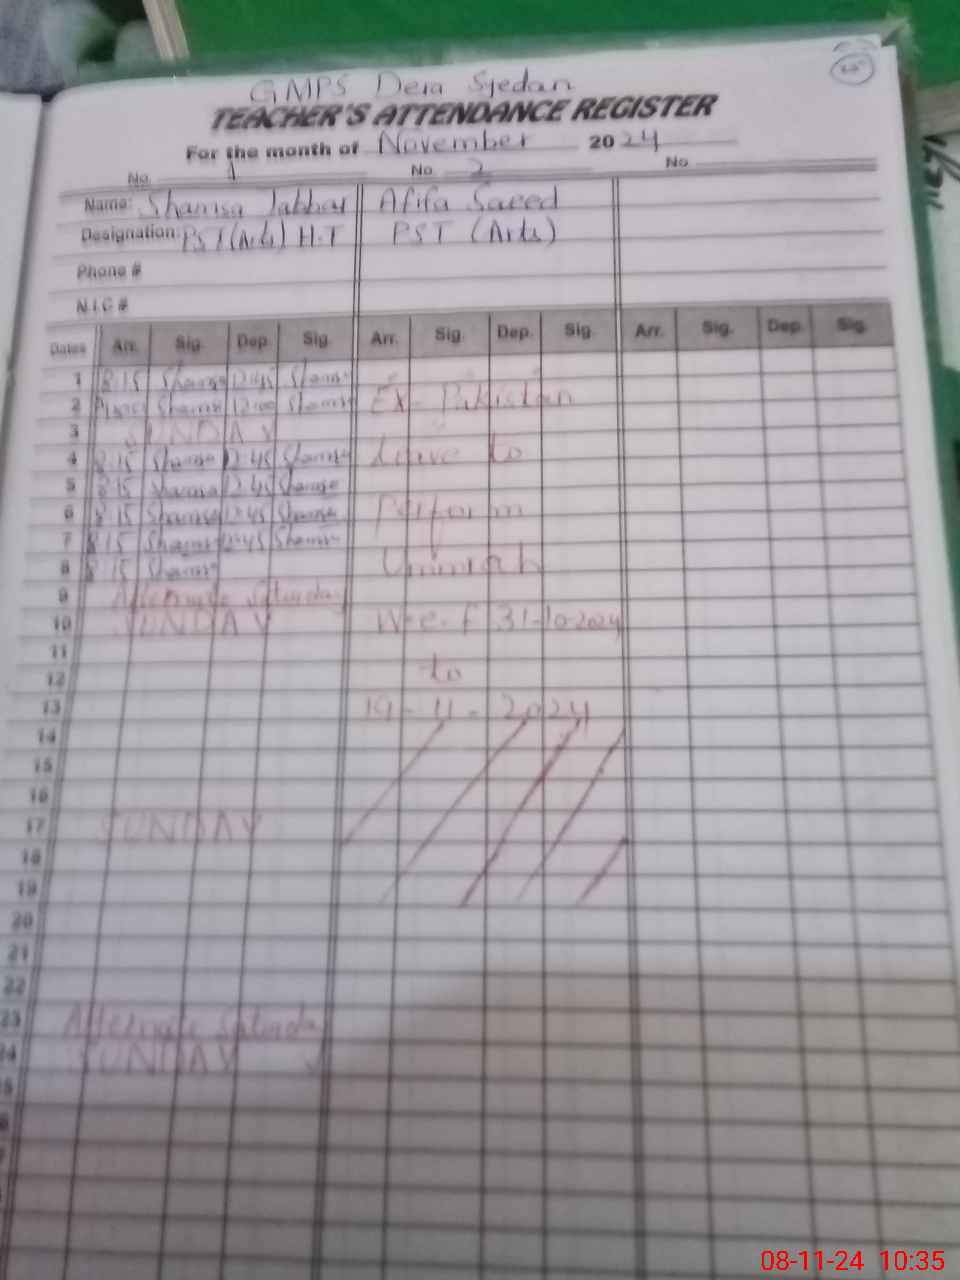 GMPS Dera Syedan
TEACHER'S ATTENDANCE REGISTER
For the month of November 2024
No. 1 No. 2 No
Name: Shamsa Jabbar Afifa Saeed
Designation: PST (Arts) H.T PST (Arts)
Phone #
N.I.C #
Dates Arr. Sig. Dep. Sig. Arr. Sig. Dep. Sig. Arr. Sig. Dep. Sig.
1 8:15 Shamsa 12:45 Shamsa
2 Shamsa 12:00 Shamsa Ex-Pakistan
3 SUNDAY
4 8:15 Shamsa 12:45 Shamsa Leave to
5 8:15 Shamsa 12:45 Shamsa
6 8:15 Shamsa 12:45 Shamsa Perform
7 8:15 Shamsa 12:45 Shamsa
8 8:15 Shamsa Ummrah
9 Alternate Saturday
10 SUNDAY W.e.f 31-10-2024
11
12 to
13 19-11-2024
14
15
16
17 SUNDAY
18
19
20
21
22
23 Alternate Saturday
24 SUNDAY
08-11-24 10:35